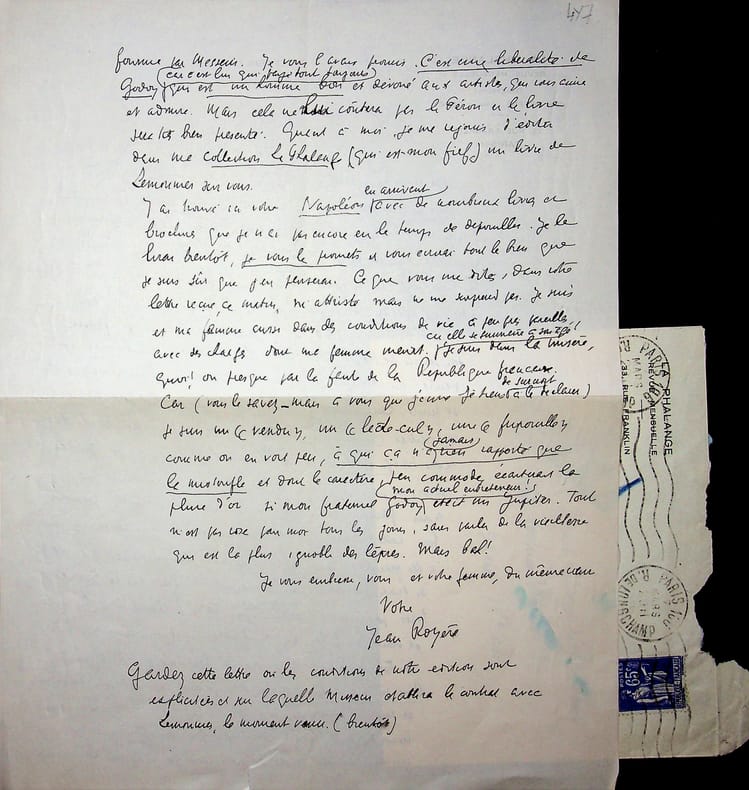 447
fournie par Messein. Je vous l'avais promis. C'est une libéralité de
(car c'est lui qui paye tout toujours)
Godoy qui est un homme bon et dévoué aux artistes, qui vous aime
et admire. Mais cela ne lui coûtera pas le Pérou et le livre
sera très bien présenté. Quant à moi je me réjouis d'éditer
dans ma collection La Phalange (qui est mon fief) un livre de
Lemonnier sur vous.
J'ai trouvé ici votre Napoléon avec de nombreux livres et
en arrivant
brochures que je n'ai pas encore eu le temps de dépouiller. Je le
lirai bientôt, je vous le promets et vous écrirai tout le bien que
je suis sûr que j'en penserai. Ce que vous me dites, dans votre
lettre reçue ce matin, m'attriste mais ne me surprend pas. Je suis
et ma femme aussi dans des conditions de vie à peu près pareilles,
avec des charges dont ma femme meurt. Je suis dans la misère,
quoi! ou presque par la faute de la République française.
Car (vous le savez – mais à vous que j'aime je tiens à le déclarer)
je suis un
comme on en voit peu, à qui ça n'a rien rapporté que
(jamais)
la mistoufle et dont le caractère peu commode écarterait la
(mon actuel entreteneur!)
pluie d'or si mon fraternel Godoy était un Jupiter. Tout
n'est pas rose pour moi tous les jours, sans parler de la vieillesse
qui est la plus ignoble des lèpres. Mais bah!
Je vous embrasse, vous et votre femme, du même cœur
Votre
Jean Royère
Gardez cette lettre où les conditions de votre édition sont
explicitées et sur laquelle Messein établira le contrat avec
Lemonnier, le moment venu. (bientôt)
PHALANGE
REVUE MENSUELLE
33, RUE FRANKLIN
PARIS
MARS
PARIS 100
R. DE LONGCHAMP
65c